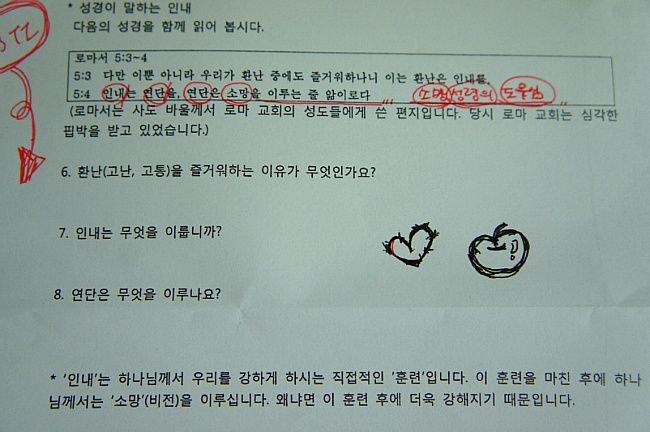 * 성경이 말하는 인내
다음의 성경을 함께 읽어 봅시다.
로마서 5:3~4
5:3 다만 이뿐 아니라 우리가 환난 중에도 즐거워하나니 이는 환난은 인내를,
5:4 인내는 연단을, 연단은 소망을 이루는 줄 앎이로다 소망 성령의 도우심
(로마서는 사도 바울께서 로마 교회의 성도들에게 쓴 편지입니다. 당시 로마 교회는 심각한
핍박을 받고 있었습니다.)
6. 환난(고난, 고통)을 즐거워하는 이유가 무엇인가요?
7. 인내는 무엇을 이룹니까?
8. 연단은 무엇을 이루나요?
* '인내'는 하나님께서 우리를 강하게 하시는 직접적인 '훈련'입니다. 이 훈련을 마친 후에 하나
님께서는 '소망'(비전)을 이루십니다. 왜냐면 이 훈련 후에 더욱 강해지기 때문입니다.